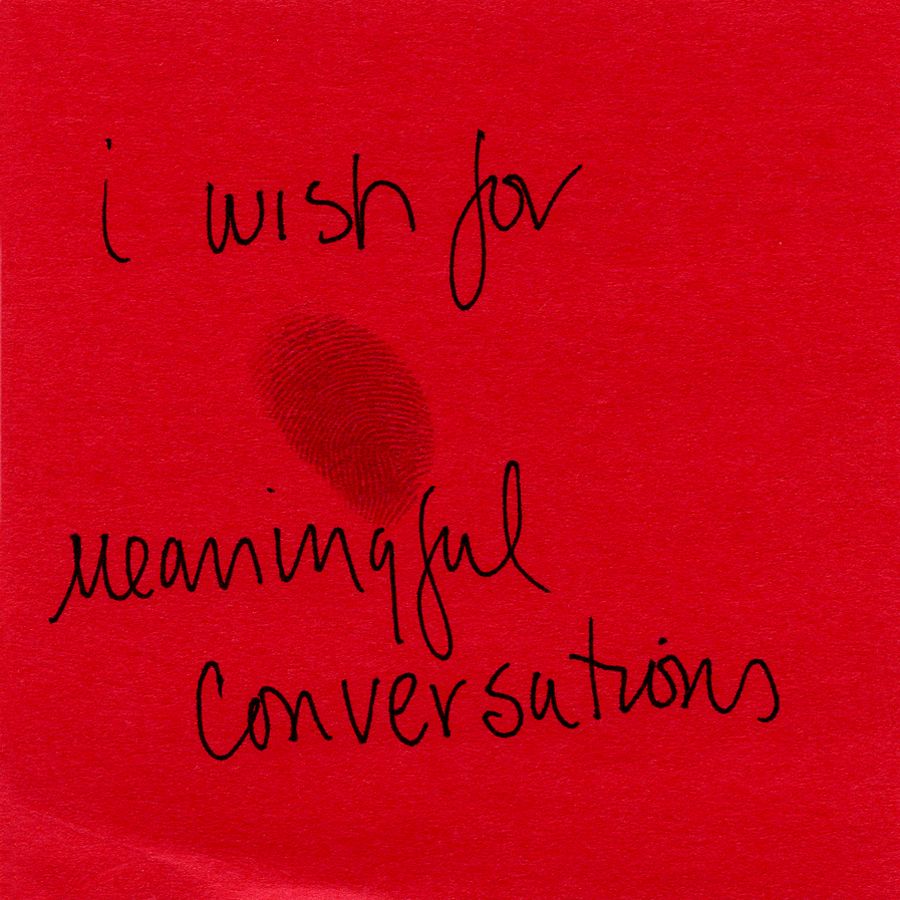 i wish for
meaningful
conversations